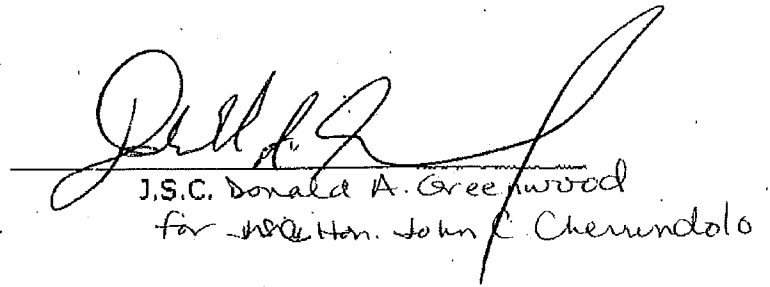 J.S.C. Donald A. Greenwood
for Hon. John C. Cherundolo